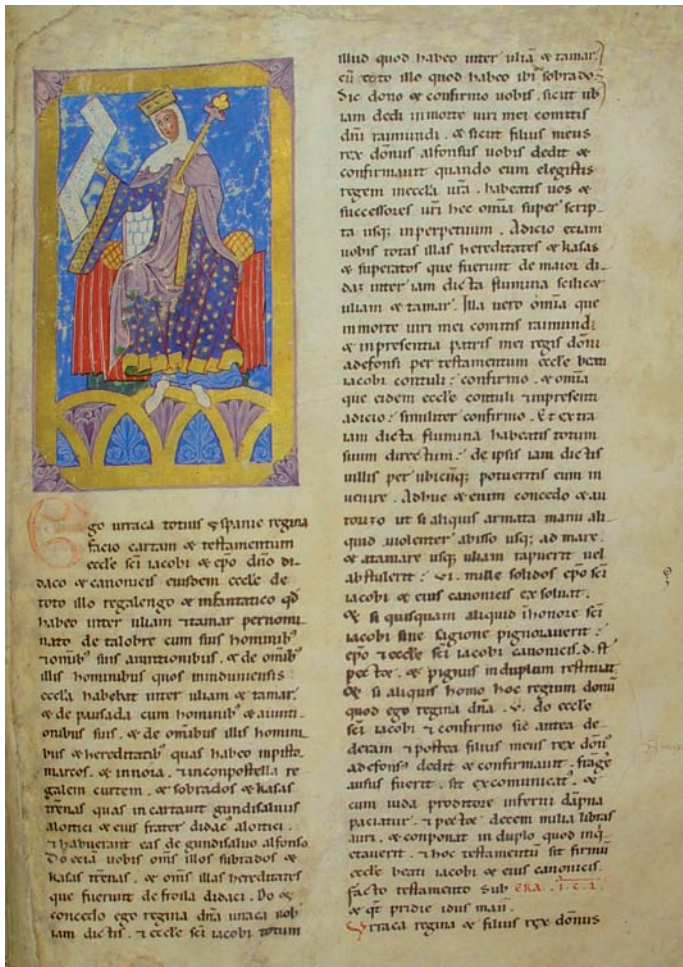 Ego urraca totius yspanie regina
facio cartam & testamentum
eccle sci iacobi & epo dno di-
daco & canonicis eiusdem eccle de
toto illo regalengo & infantatico qd
habeo inter uliam & tamar pernomi
nato de talobre cum suis hominib'
& omib' suis aiuntionibus. & de omib'
illis hominibus quos minduniensis
eccla habebat inter uliam & tamar.
& de pausada cum hominib' & aiunti-
onibus suis. & de omibus illis homini-
bus & hereditatib' quas habeo in pisto-
marcos. & in noia. & in conpostella re
galem curtem. & sobrados & kasas
trenas quas incartaunt gundisaluus
aloitici & eius frater didac' aloitici.
& habuerant eas de gundisaluo alfonso.
Do ecia uobis omis illos subrados &
kasas trenas. & omis illas hereditates
que fuerunt de froila didaci. Do &
concedo ego regina dna urraca uob
iam dictis. & eccle sci iacobi totum
illud quod habeo inter ulia & tamar.
cu toto illo quod habeo ibi sobrado.
Sic dono & confirmo uobis. sicut ub
iam dedi in morte uiri mei comitis
dni raimundi. & sicut filius meus
rex donus alfonsus uobis dedit &
confirmauit quando eum elegistis
regem in eccla ura. habeatis uos &
successores uri hec omia super scrip-
ta usq; in perpetuum. Adicio eciam
uobis totas illas hereditates & kasas
& superatos que fuerunt de maior di-
daz inter iam dicta flumina scilic&
uliam & tamar. Illa uero omia que
in morte uiri mei comitis raimundi
& in presentia patris mei regis doni
adefonsi per testamentum eccle beati
iacobi contuli: confirmo. & omia
que eidem eccle contuli & in presenti
adicio: similiter confirmo. Et extra
iam dicta flumina habeatis totum
suum directum: de ipsis iam dictis
uillis per ubicunq; potueritis eum in
uenire. Adhuc & enim concedo & au
torizo ut si aliquis armata manu ali-
quid uiolenter abisso usq; ad mare.
& atamare usq; uliam rapuerit uel
abstulerit: .VI. mille solidos epo sci
iacobi & eius canonicis exsoluat.
Et si quisquam aliquid i honore sci
iacobi sine sigione pignorauerit:
epo & eccle sci iacobi canonicis .d. st
pectet. & pignus in duplum restituat.
Et si aliquis homo hoc regium donu
quod ego regina dna .V. do eccle
sci iacobi & confirmo sic antea de-
deram & postea filius meus rex don'
adefons' dedit & confirmauit. frage
ausus fuerit. sit excomunicat'. &
cum iuda proditore inferni dapna
paciatur. & pectet decem milia libras
auri. & conponat in duplo quod inq
etauerit. & hoc testamentu sit firmu
eccle beati iacobi & eius canonicis.
facto testamento sub ERA. I.C.L.
& qt pridie idus maii.
Urraca regina & filius rex donus